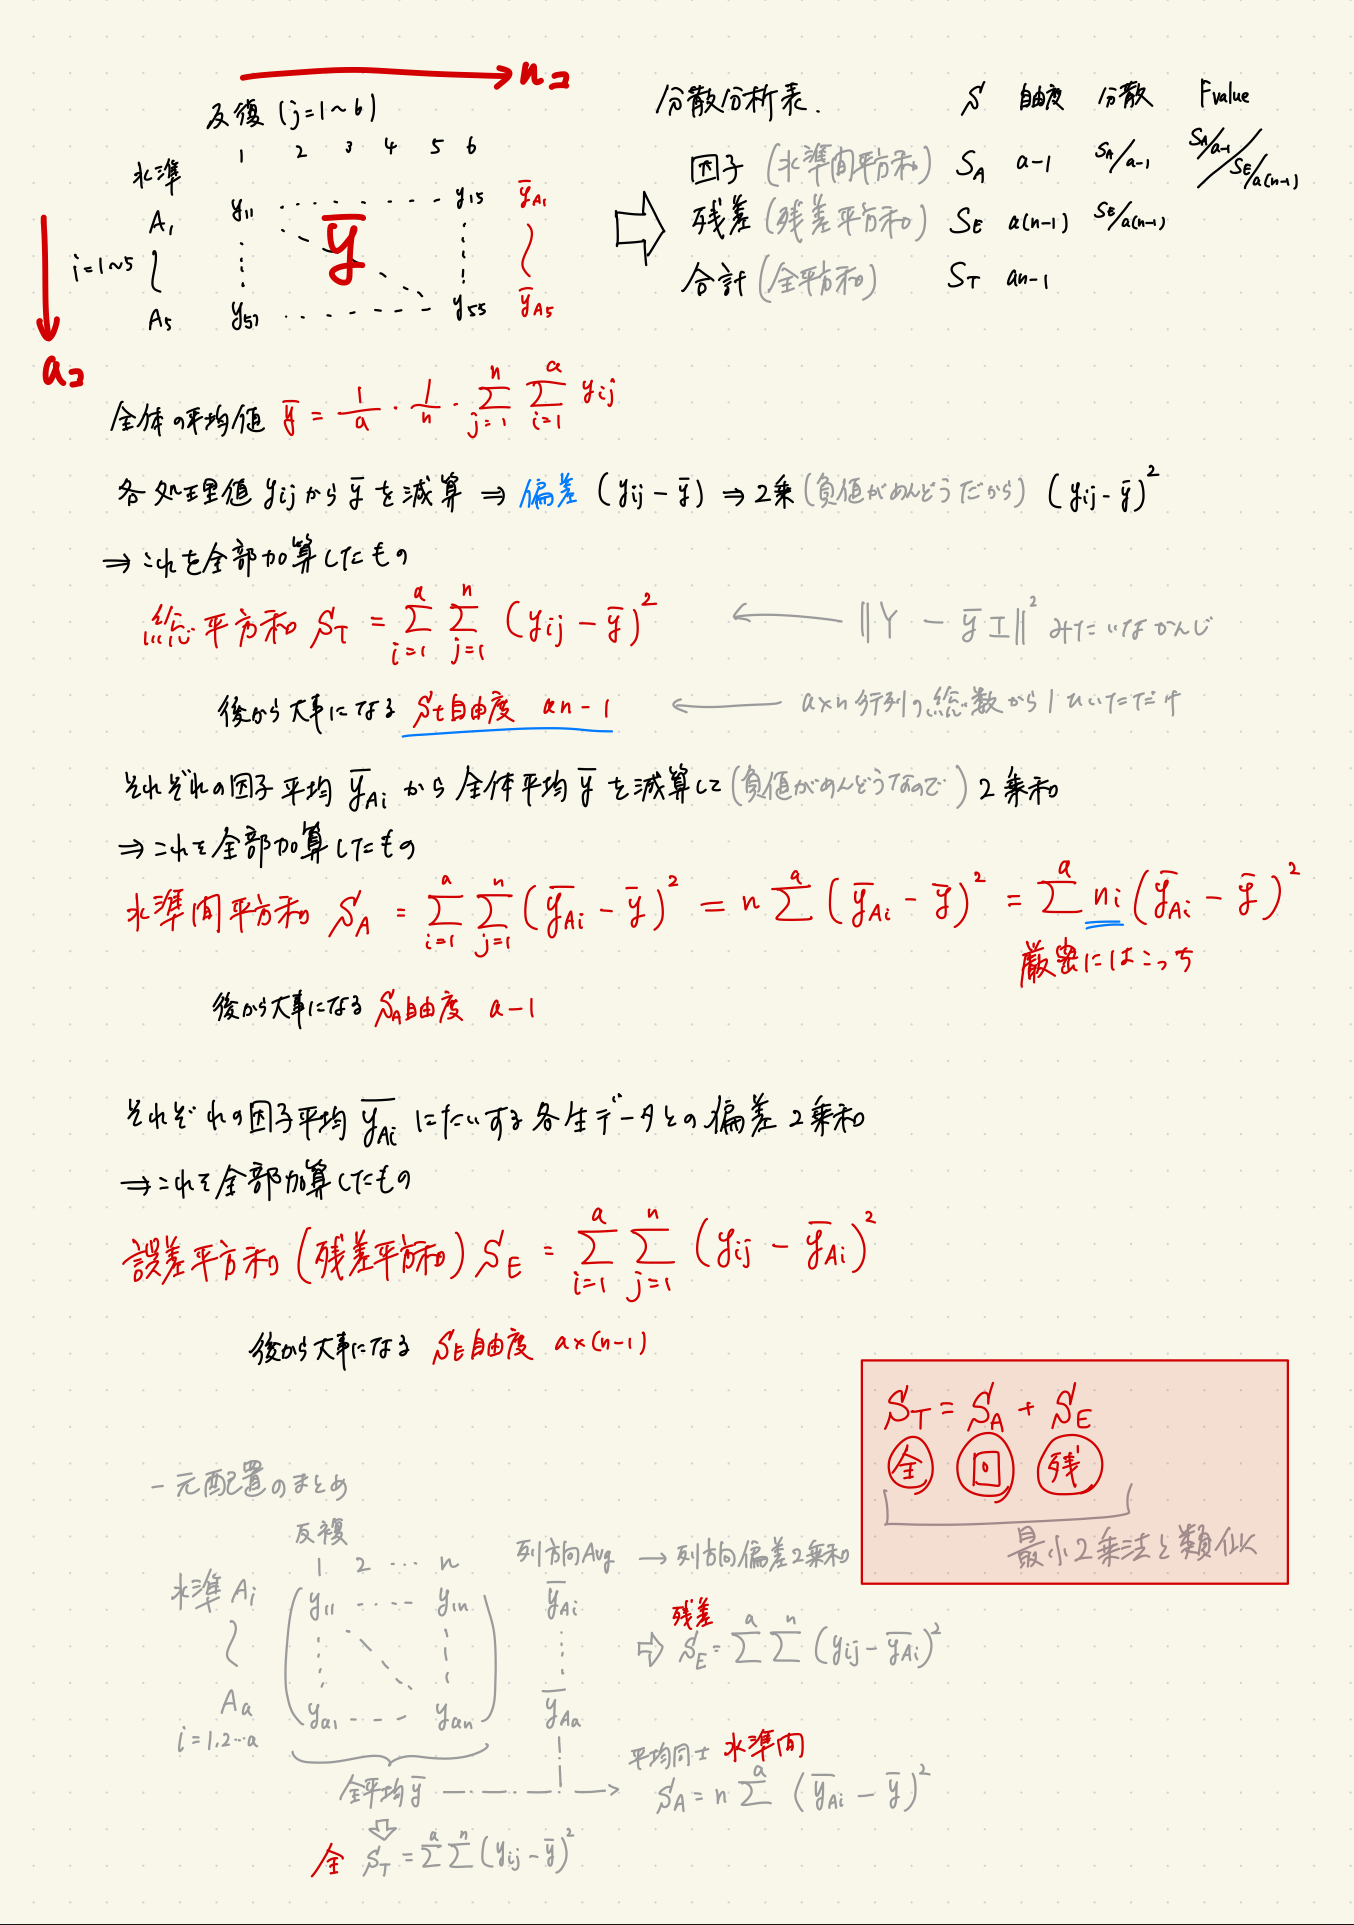 nコ
反復 (j=1～6)
1 2 3 4 5 6
水準
A₁ y₁₁ ‥‥‥ y₁₅ ȳA₁
i=1～5 ȳ
A₅ y₅₁ ‥‥‥ y₅₅ ȳA₅
aコ
分散分析表. S 自由度 分散 Fvalue
因子 (水準間平方和) S_A a-1 S_A/a-1 S_A/a-1 / S_E/a(n-1)
残差 (残差平方和) S_E a(n-1) S_E/a(n-1)
合計 (全平方和) S_T an-1
全体の平均値 ȳ = 1/a · 1/n · Σ[j=1, n] Σ[i=1, a] yij
各処理値 yij から ȳ を減算 ⇒ 偏差 (yij - ȳ) ⇒ 2乗 (負値がめんどうだから) (yij - ȳ)²
⇒ これを全部加算したもの
総平方和 S_T = Σ[i=1, a] Σ[j=1, n] (yij - ȳ)² ← ‖Y - ȳI‖² みたいなかんじ
後から大事になる St自由度 an-1 ← a×n行列の総数から1ひいただけ
それぞれの因子平均 ȳAi から 全体平均 ȳ を減算して (負値がめんどうなので) 2乗和
⇒ これを全部加算したもの
水準間平方和 S_A = Σ[i=1, a] Σ[j=1, n] (ȳAi - ȳ)² = n Σ[a] (ȳAi - ȳ)² = Σ[a] ni (ȳAi - ȳ)²
厳密にはこっち
後から大事になる S_A自由度 a-1
それぞれの因子平均 ȳAi にたいする各生データとの偏差2乗和
⇒ これを全部加算したもの
誤差平方和 (残差平方和) S_E = Σ[i=1, a] Σ[j=1, n] (yij - ȳAi)²
後から大事になる S_E自由度 a×(n-1)
S_T = S_A + S_E
全 回 残
最小2乗法と類似
一元配置のまとめ
反複
1 2 … n
列方向Avg → 列方向偏差2乗和
水準 Ai y₁₁ ‥‥ y₁n ȳAi
残差
⇒ S_E = Σ[a] Σ[n] (yij - ȳAi)²
Aa ya₁ ‥‥ yan ȳAa
i=1.2…a
平均同士 水準間
全平均 ȳ → S_A = n Σ[a] (ȳAi - ȳ)²
全 S_T = Σ[a] Σ[n] (yij - ȳ)²